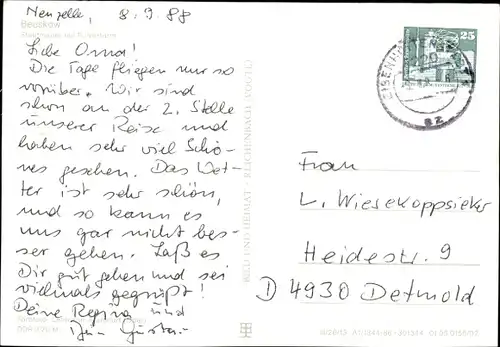 Neuzelle, 8.9.88
Beeskow
Liebe Oma!
Die Tage fliegen nur so
vorüber. Wir sind
schon an der 2. Stelle
unserer Reise und
haben sehr viel Schö-
nes gesehen. Das Wet-
ter ist sehr schön,
und so kann es
uns gar nicht bes-
ser gehen. Laß es
Dir gut gehen und sei
vielmals gegrüßt!
Deine Regina und
Dein
BILD UND HEIMAT · REICHENBACH (VOGTL)
25
Frau
L. Wiesekoppsieker
Heidestr. 9
D 4930 Detmold